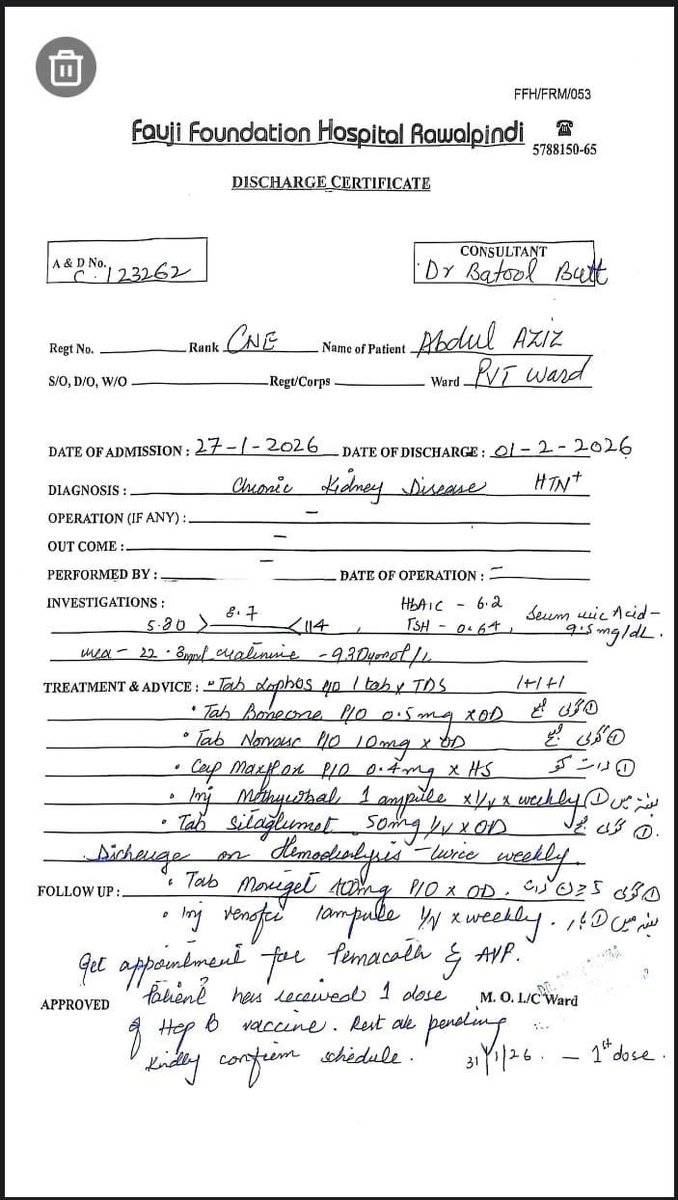 FFH/FRM/053
Fauji Foundation Hospital Rawalpindi
5788150-65
DISCHARGE CERTIFICATE
A & D No. C-123262
CONSULTANT
Dr Batool Butt
Regt No. Rank CNE Name of Patient Abdul AZIZ
S/O, D/O, W/O Regt/Corps Ward PVT Ward
DATE OF ADMISSION : 27-1-2026 DATE OF DISCHARGE : 01-2-2026
DIAGNOSIS : Chronic Kidney Disease HTN+
OPERATION (IF ANY) : –
OUT COME : –
PERFORMED BY : – DATE OF OPERATION : –
INVESTIGATIONS : HbA1C - 6.2
5.80 > 8.7 < 114 , TSH - 0.64, Serum uric Acid - 9.5mg/dL.
urea - 22.8 creatinine - 930 μmol/L
TREATMENT & ADVICE : Tab P/O 1 tab x TDS 1+1+1
• Tab Boneone P/O 0.5mg x OD ① گولی صبح
• Tab Norvasc P/O 10mg x OD ① گولی صبح
• Cap Maxflow P/O 0.4mg x HS ① رات کو
• Inj 1 ampule x I/V x weekly ① ہفتہ میں
• Tab Sitaglumet 50mg x OD ① گولی صبح
Discharge on Hemodialysis twice weekly.
FOLLOW UP : • Tab Moniget P/O x OD. ① گولی
• Inj venofer 1ampule I/V x weekly. ہفتہ میں ① بار
Get appointment for Permacath & AVF.
APPROVED Patient has received 1 dose M. O. I./C Ward
of Hep B vaccine. Rest are pending
Kindly confirm schedule. 31/1/26. – 1st dose.